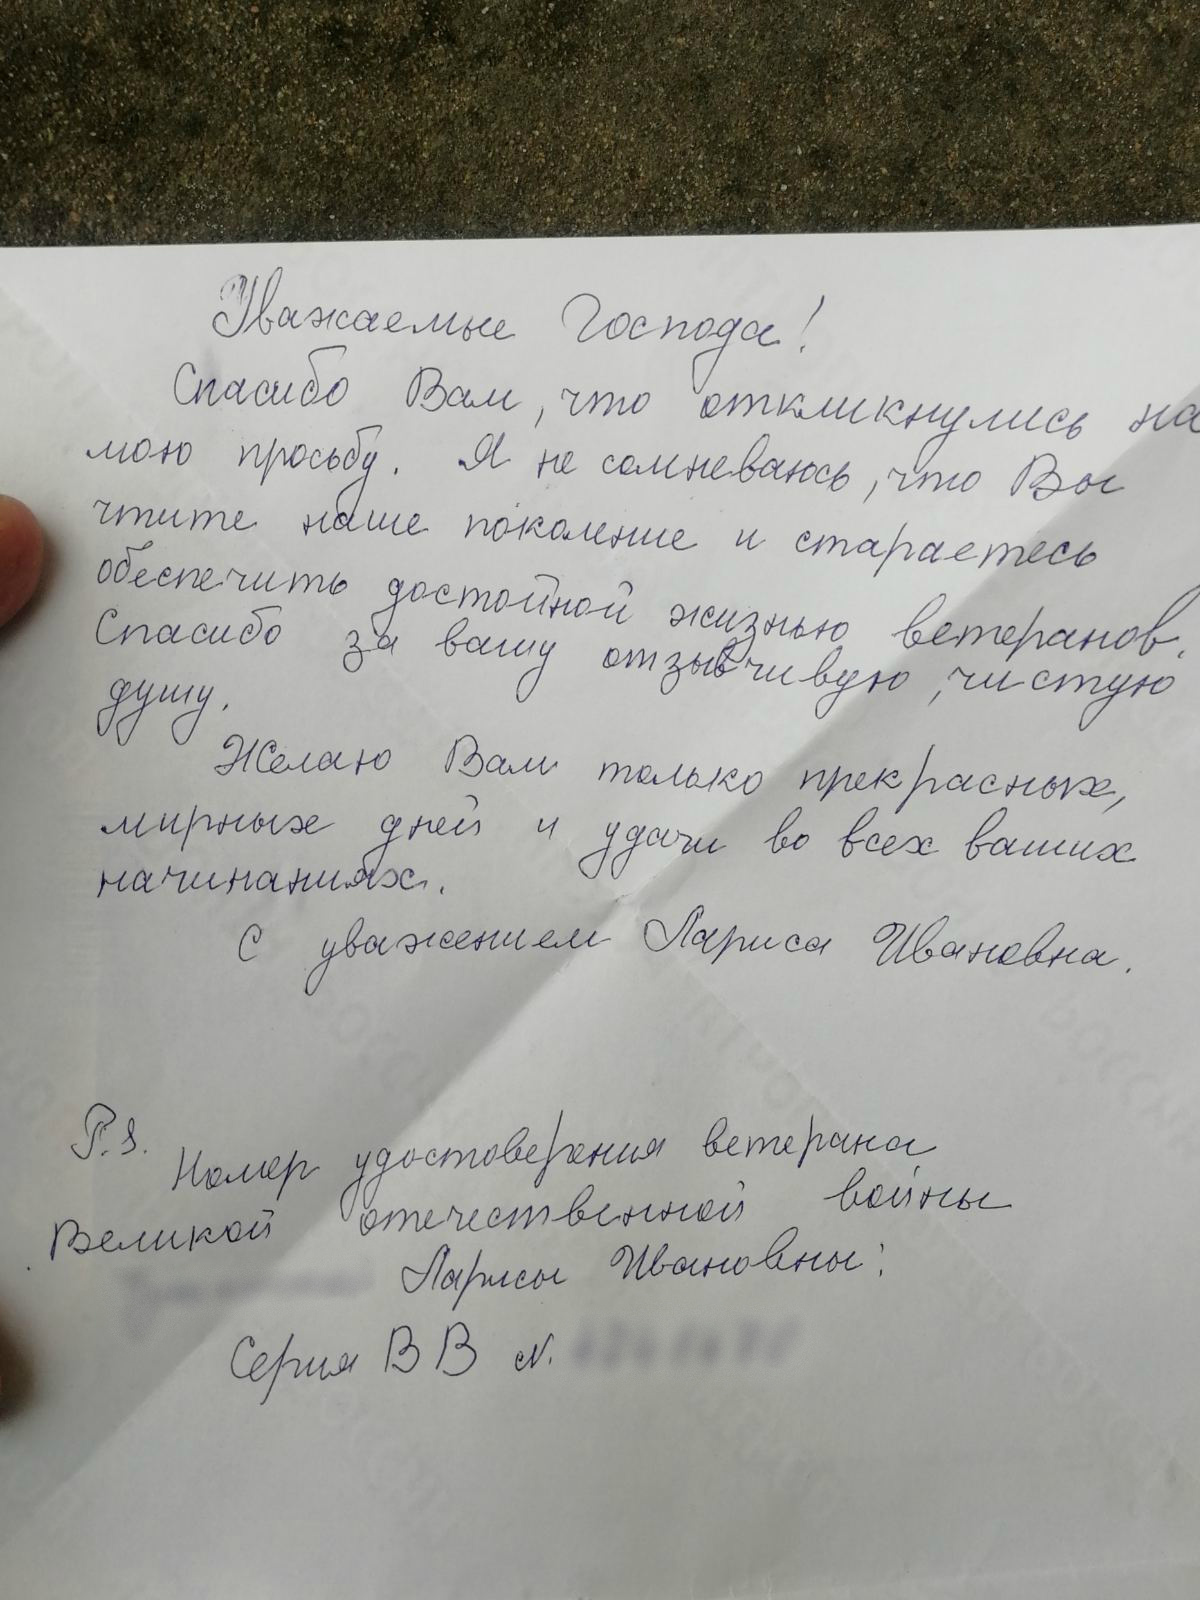 Уважаемые Господа!
Спасибо Вам, что откликнулись на
мою просьбу. Я не сомневаюсь, что Вы
чтите наше поколение и стараетесь
обеспечить достойной жизнью ветеранов.
Спасибо за вашу отзывчивую, чистую
душу.
Желаю Вам только прекрасных,
мирных дней и удачи во всех ваших
начинаниях.
С уважением Лариса Ивановна.
P.S.
Номер удостоверения ветерана
Великой отечественной войны
Ларисы Ивановны:
Серия ВВ N.